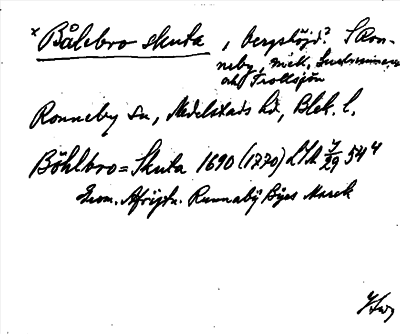 x Bålebro skuta, bergshöjd? S Ron-
neby, mell.
och Trollsjön
Ronneby sn, Medelstads hd, Blek. l.
Böhlbro=Skuta 1690 (1770) LSA 7/29 54 4
Geom. Afrijtn. Runnabÿ Bÿes Marck